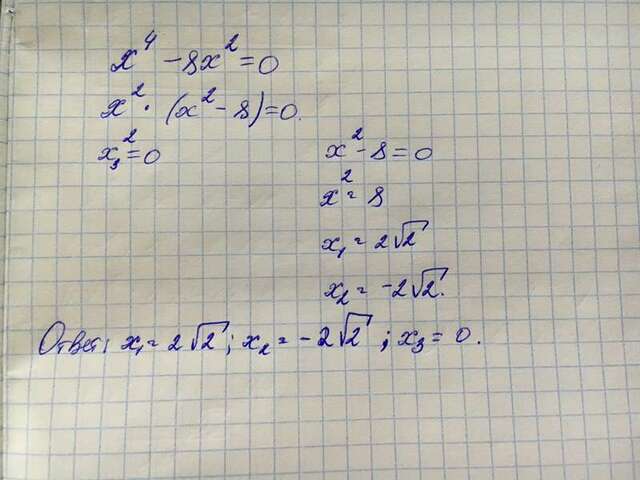 x⁴ - 8x² = 0
x² · (x² - 8) = 0.
x₃² = 0
x² - 8 = 0
x² = 8
x₁ = 2√2
x₂ = -2√2.
Ответ: x₁ = 2√2; x₂ = -2√2; x₃ = 0.